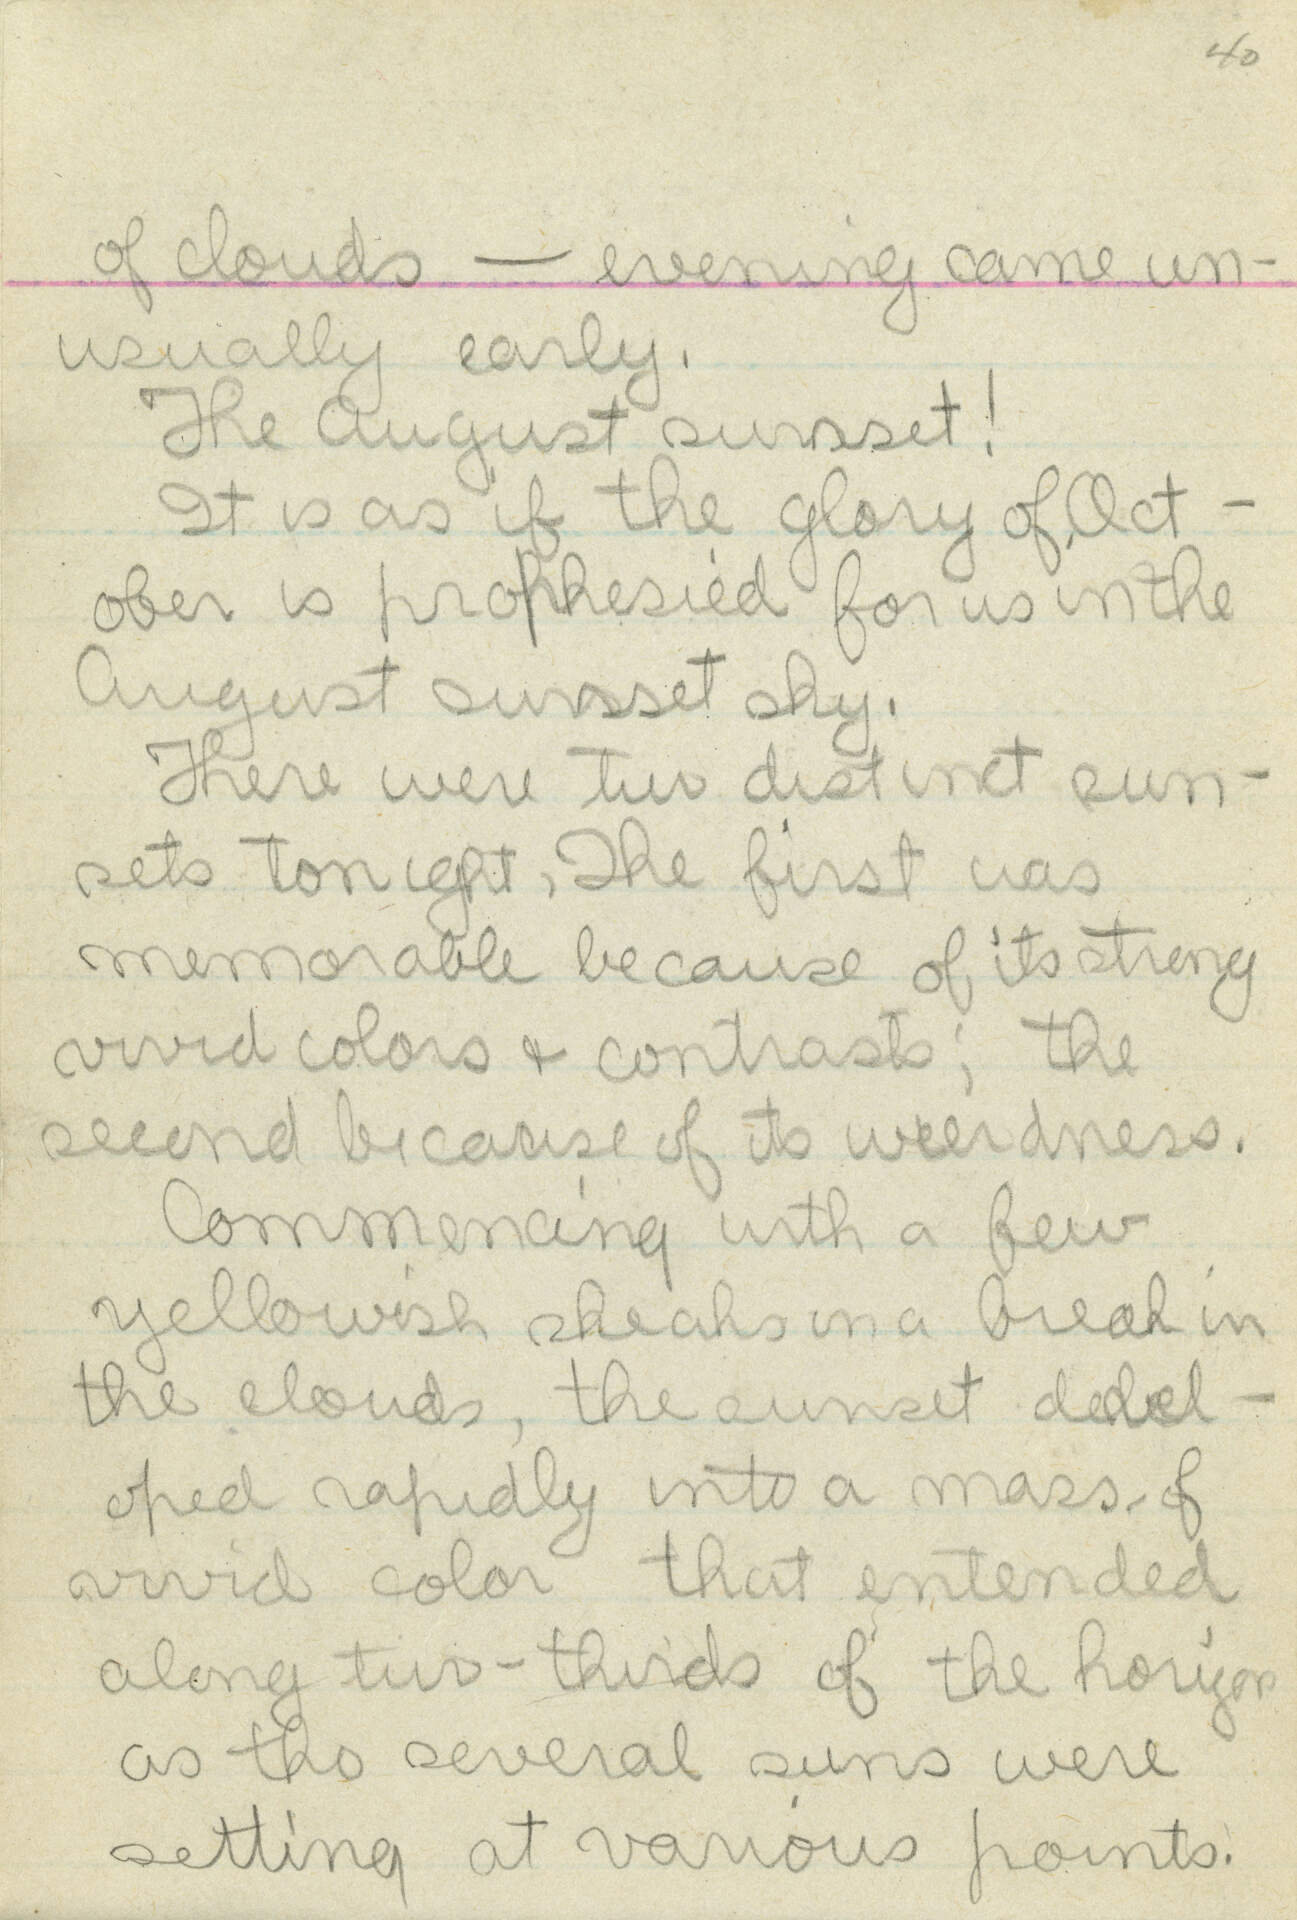 40
of clouds — evening came un-
usually early.
The August sunset!
It is as if the glory of Oct -
ober is prophesied for us in the
August sunset sky.
There were two distinct sun-
sets tonight, The first was
memorable because of its strong
vivid colors & contrasts; the
second because of its weirdness.
Commencing with a few
yellowish streaks in a break in
the clouds, the sunset devel -
oped rapidly into a mass of
vivid color that extended
along two-thirds of the horizon
as tho several suns were
setting at various points.